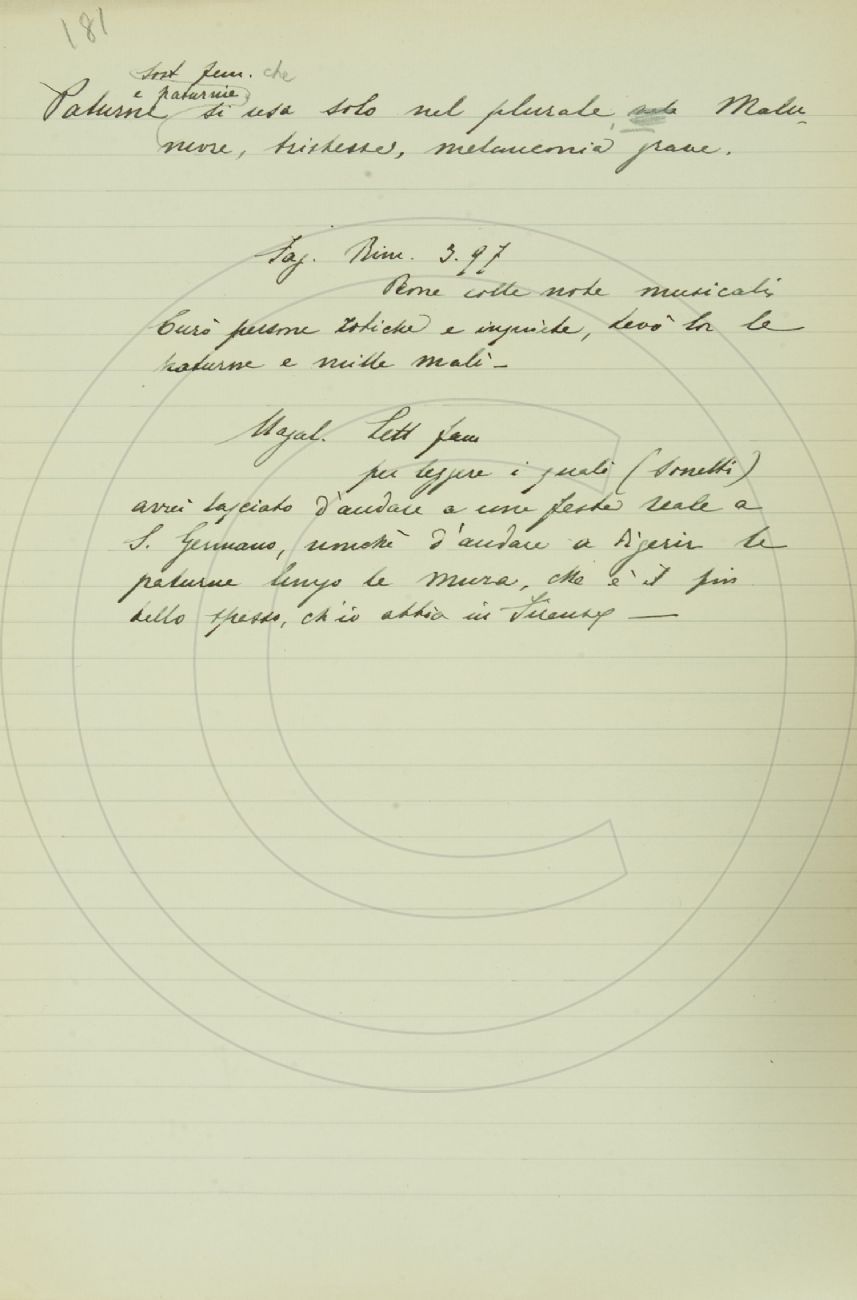 181
sost fem. che
e paturnie
Paturne si usa solo nel plurale, Malu-
more, tristezza, melanconia grave.
Fag. Rim. 3. 97
Pone colle note musicali,
Curò persone zotiche e inquiete, levò lor le
paturne e mille mali —
Magal. Lett fam
per leggere i quali (Sonetti)
avrei lasciato d'andare a una festa reale a
S. Germano, nonchè d'andare a digerir le
paturne lungo le mura, che è il più
dello spesso, ch'io abbia in Firenze —